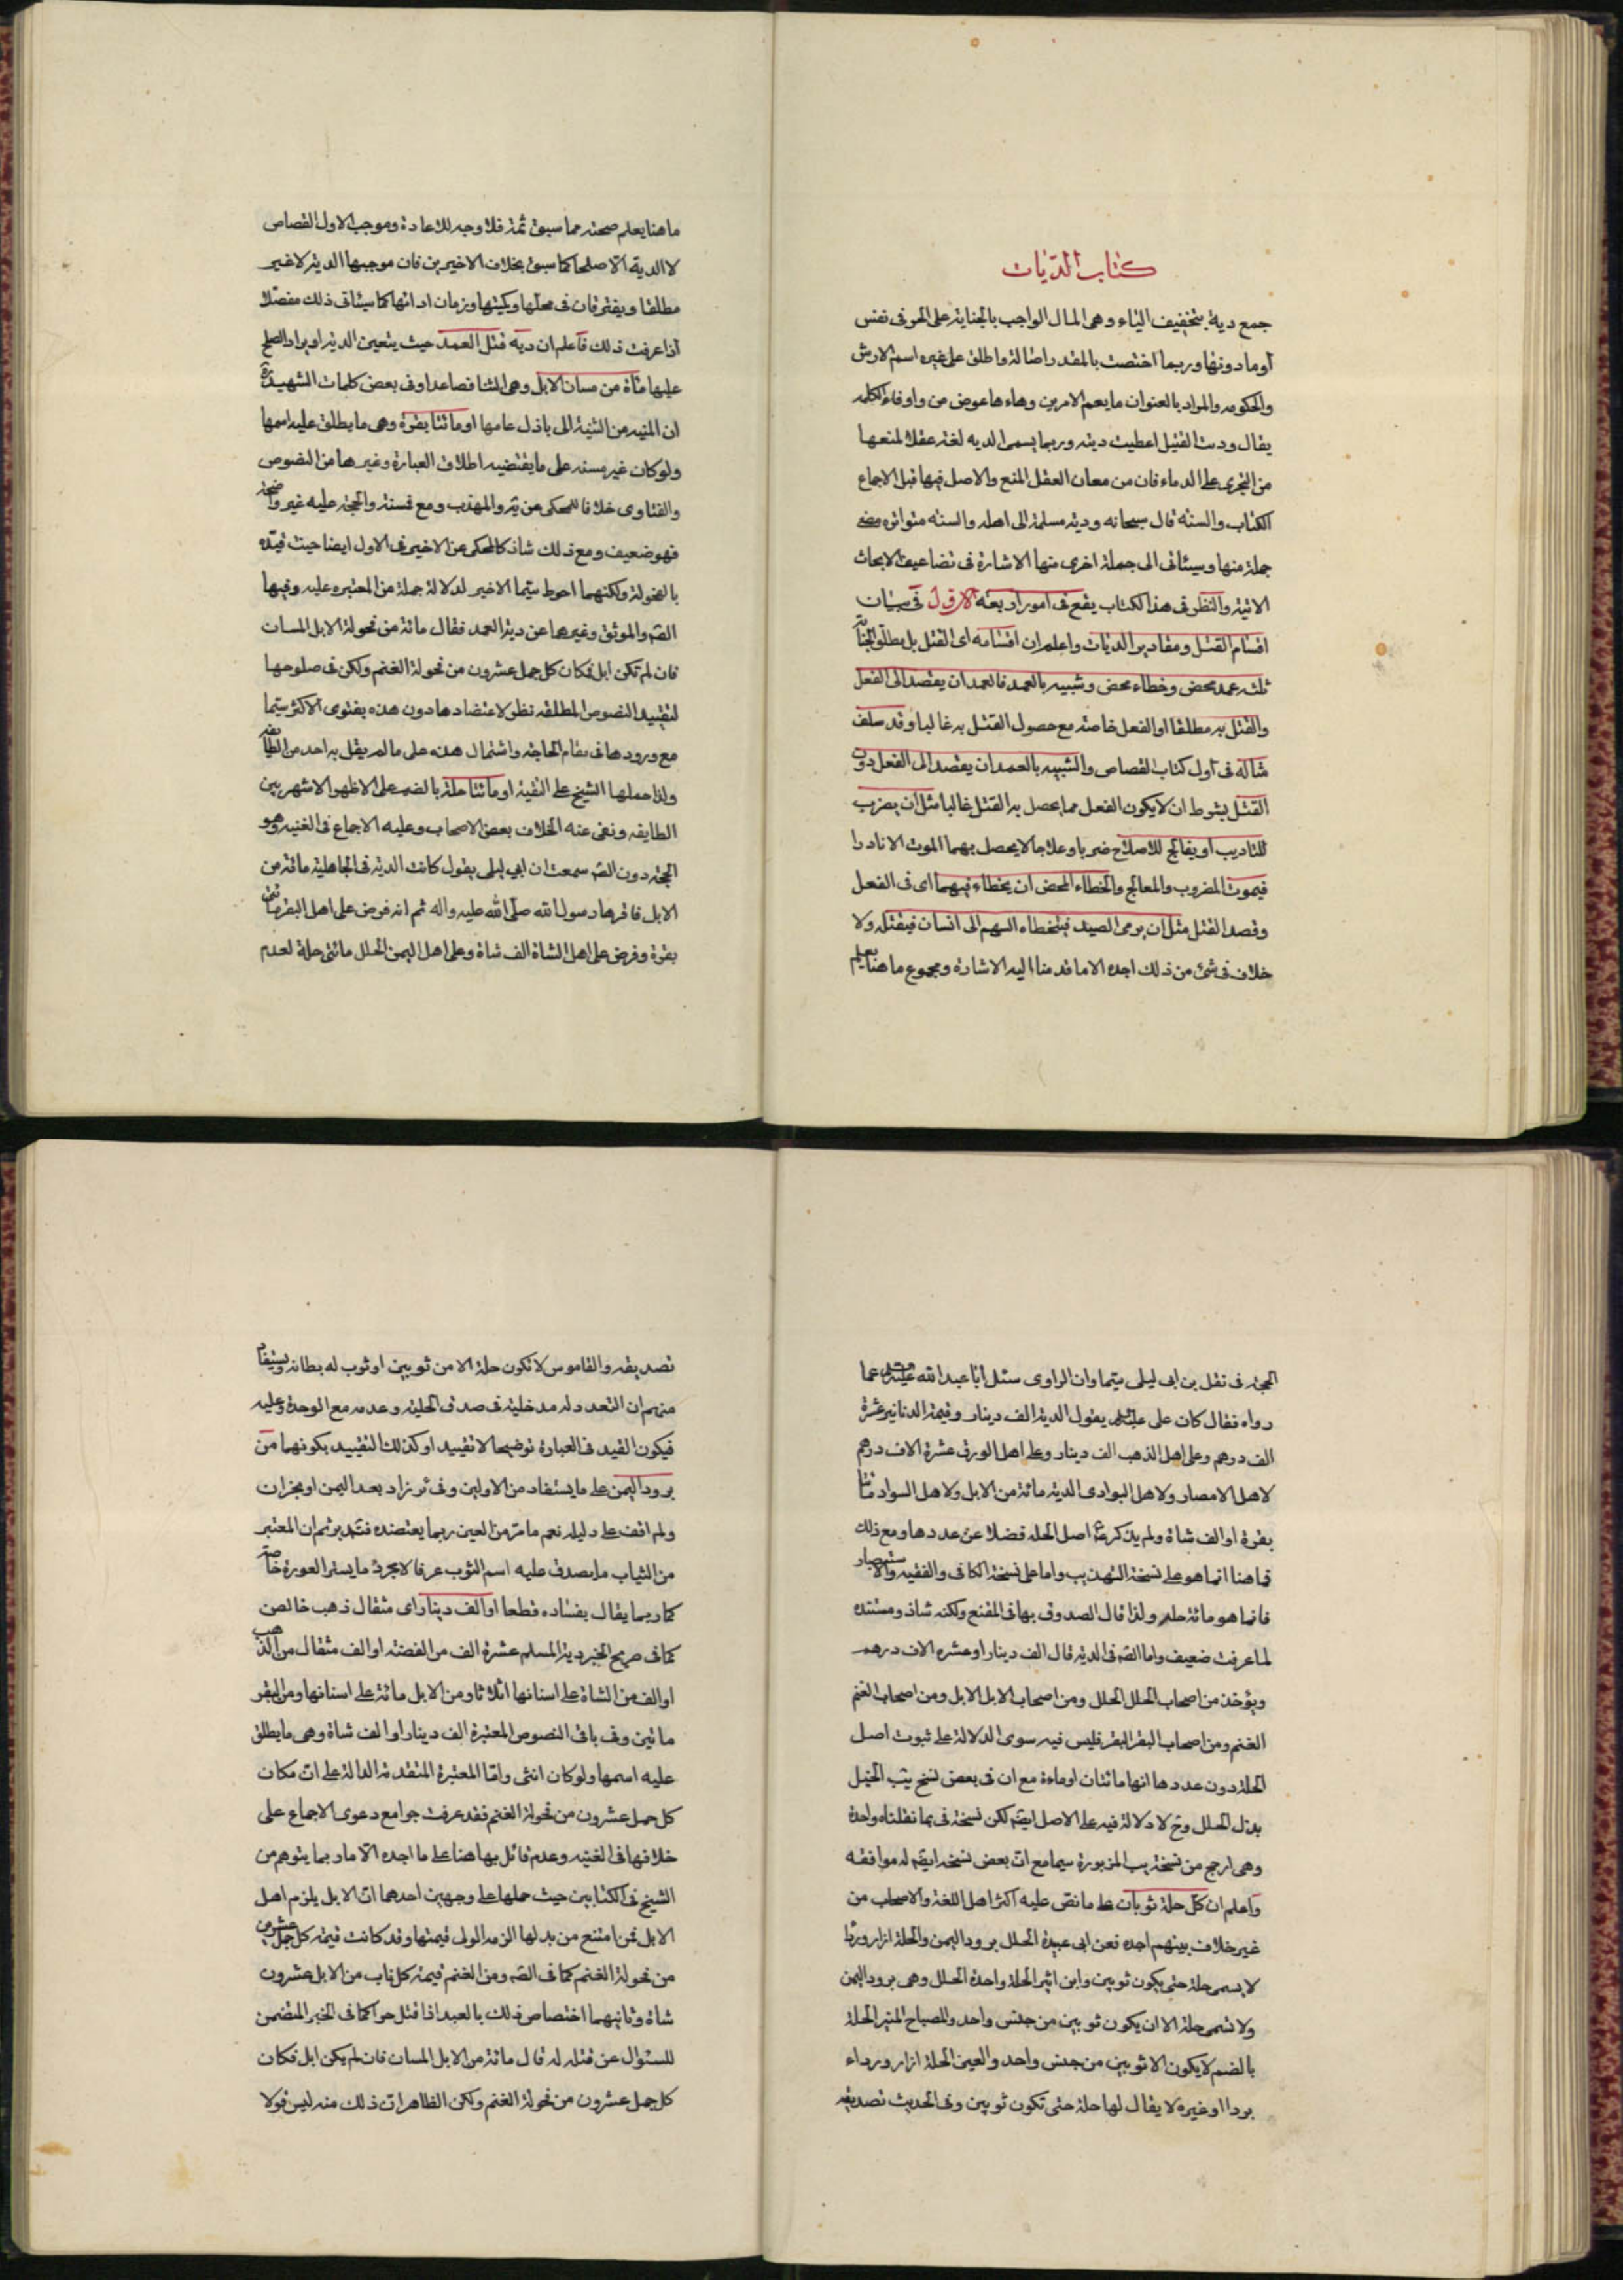 كتاب الديات
جمع دية بتخفيف الياء وهى المال الواجب بالجناية على الحر فى نفس
أو ما دونها وربما اختصت بالمقدر اصالة واطلق على غيره اسم الارش
والحكومه والمراد بالعنوان ما يعم الامرين وهاءها عوض من واو فاء الكلمه
يقال ودت القتيل اعطيت ديته وربما يسمى الديه لغة عقلا لمنعها
من التجرى على الدماء فان من معان العقل المنع والاصل فيها قبل الاجماع
الكتاب والسنه قال سبحانه ودية مسلمة الى اهله والسنه متواتره مضى
جملة منها وسيئاتى الى جملة اخرى منها الاشارة فى تضاعيف الابحاث
الاتية والنظر فى هذا الكتاب يقع فى امور اربعه الاول فى بيان
اقسام القتل ومقادير الديات واعلم ان اقسامه اى القتل بل مطلق الجناية
ثلثه عمد محض وخطاء محض وشبيه بالعمد فالعمد ان يقصد الى الفعل
والقتل به مطلقا او الفعل خاصة مع حصول القتل به غالبا وقد سلف
مثاله فى أول كتاب القصاص والشبيه بالعمد ان يقصد الى الفعل دون
القتل بشرط ان لا يكون الفعل مما يحصل به القتل غالبا مثل أن يضرب
للتاديب أو يعالج للاصلاح ضربا وعلاجا لا يحصل بهما الموت الا نادرا
فيموت المضروب والمعالج والخطاء المحض ان يخطاء فيهما اى فى الفعل
وقصد القتل مثل ان يرمى الصيد فيخطاء السهم الى انسان فيقتله ولا
خلاف فى شئ من ذلك اجده الا ما قدمنا اليه الاشارة ومجموع ما هنا يعلم
ما هنا يعلم صحته مما سبق ثمة فلا وجه للاعادة وموجب الاول القصاص
لا الدية الا صلحا كما سبق بخلاف الاخيرين فان موجبها الدية لا غير
مطلقا ويفترقان فى محلها وكميتها وزمان ادائها كما سيئاتى ذلك مفصلا
اذا عرفت ذلك فأعلم ان دية قتل العمد حيث يتعين الدية او يراد الصلح
عليها مأة من مسان الابل وهى الثنايا فصاعدا وفى بعض كلمات الشهيد ره
ان المنيه من الثنية الى باذل عامها او مائتا بقرة وهى ما يطلق عليه اسمها
ولو كان غير مسنه على ما يقتضيه اطلاق العبارة وغيرها من النصوص
والفتاوى خلافا للمحكى عن يه والمهذب ومع فمسنة والحجة عليه غير واضحة
فهو ضعيف ومع ذلك شاذ كالمحكى عن الاخير فى الاول ايضا حيث قيده
بالفحولة ولكنهما احوط سيما الاخير لدلالة جملة من المعتبره عليه وفيها
الصه والموثق وغيرهما عن دية العمد فقال مائة من فحولة الابل المسان
فان لم تكن ابل فكان كل جمل عشرون من فحولة الغنم ولكن فى صلوحها
لتقييد النصوص المطلقه نظر لاعتضادها دون هذه بفتوى الاكثر سيما
مع ورودها فى مقام الحاجة واشتمال هذه على ما لم يقل به احد من الطايفه
ولذا حملها الشيخ على التقية او مائتا حلة بالضم على الاظهر الاشهر بين
الطايفه ونفى عنه الخلاف بعض الاصحاب وعليه الاجماع فى الغنيه وهو
الحجة دون الصه سمعت ابن ابي ليلى يقول كانت الدية فى الجاهلية مائة من
الابل فاقرها رسول الله صلى الله عليه واله ثم انه فرض على اهل البقر مائتى
بقرة وفرض على اهل الشاة الف شاة وعلى اهل اليمن الحلل مائتى حلة لعدم
الحجة فى نقل بن ابى ليلى سيما وان الراوى سئل ابا عبد الله عليه السلم عما
رواه فقال كان على عليه السلم يقول الدية الف دينار وقيمة الدنانير عشرة
الف درهم وعلى اهل الذهب الف دينار وعلى اهل الورق عشرة الاف درهم
لاهل الامصار ولاهل البوادى الدية مائة من الابل ولاهل السواد مائتا
بقرة او الف شاة ولم يذكر ع اصل الحله فضلا عن عددها ومع ذلك
فما هنا انما هو على نسخة التهذيب واما على نسخة الكافى والفقيه والاستبصار
فانما هو مائة حله ولذا قال الصدوق بها فى المقنع ولكنه شاذ ومستنده
لما عرفت ضعيف واما الصه فى الدية قال الف دينار او عشره الاف درهم
ويؤخذ من اصحاب الحلل الحلل ومن اصحاب الابل الابل ومن اصحاب الغنم
الغنم ومن اصحاب البقر البقر فليس فيه سوى الدلالة على ثبوت اصل
الحلة دون عددها انها مائتان او ماءة مع ان فى بعض نسخ يب الخيل
بدل الحلل وح لا دلالة فيه على الاصل ايضا لكن نسخة فى بما نقلناه واحدة
وهى ارجح من نسخة يب المزبورة سيما مع ان بعض نسخه ايضا له موافقه
وأعلم ان كل حلة ثوبان على ما نص عليه اكثر اهل اللغة والاصحاب من
غير خلاف بينهم اجده فعن ابى عبيدة الحلل برود اليمن والحلة ازار ورداء
لا يسمى حلة حتى يكون ثوبين وابن اثير الحلة واحدة الحلل وهى برود اليمن
ولا تسمى حلة الا ان يكون ثوبين من جنس واحد والمصباح المنير الحلة
بالضم لا يكون الا ثوبين من جنس واحد والعين الحلة ازار ورداء
بردا او غيره لا يقال لها حلة حتى تكون ثوبين وفى الحديث تصديقه
تصديقه والقاموس لا تكون حلة الا من ثوبين او ثوب له بطانة ويستفاد
منهم ان التعدد له مدخلية فى صدق الحلية وعدمه مع الوحدة وعليه
فيكون القيد فى العبارة توضيحا لا تقييد او كذلك التقييد بكونهما من
برود اليمن على ما يستفاد من الاولين وفى ئر زاد بعد اليمن او نجران
ولم اقف على دليله نعم ما مر من العين ربما يعتضده فتدبر ثم ان المعتبر
من الثياب ما يصدق عليه اسم الثوب عرفا لا مجرد ما يستر العورة خاصة
كما ربما يقال بفساده قطعا او الف دينار اى مثقال ذهب خالص
كما فى صريح الخبر دية المسلم عشرة الف من الفضة او الف مثقال من الذهب
او الف من الشاة على اسنانها اثلاثا ومن الابل مائة على اسنانها ومن البقر
مائتين وفى باقى النصوص المعتبرة الف دينار او الف شاة وهى ما يطلق
عليه اسمها ولو كان انثى واما المعتبرة المتقدمة الدالة على ان مكان
كل جمل عشرون من فحولة الغنم فقد عرفت جوامع دعوى الاجماع على
خلافها فى الغنيه وعدم قائل بها هنا على ما اجده الا ما ربما يتوهم من
الشيخ فى الكتابين حيث حملها على وجهين احدهما ان الابل يلزم اهل
الابل فمن امتنع من بدلها الزمه الولى قيمتها وقد كانت قيمة كل جمل عشرون
من فحولة الغنم كما فى الصه ومن الغنم قيمة كل ناب من الابل عشرون
شاة وثانيهما اختصاص ذلك بالعبد اذا قتل حرا كما فى الخبر المتضمن
للسئوال عن قتله له قال مائة من الابل المسان فان لم يكن ابل فكان
كل جمل عشرون من فحولة الغنم ولكن الظاهر ان ذلك منه ليس قولا